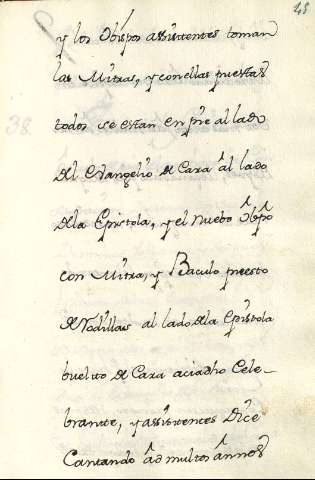 45
y los Obispos assistentes toman
las Mitras, y con ellas puestas
todos se estan en pie al lado
del Evangelio de Cara al lado
dela Epistola, y el nuebo Obpo
con Mitra, y Baculo puesto
de Rodillas al lado dela Epistola
buelto de Cara aciadho Cele-
brante, y assistentes Dice
Cantando ad multos annos